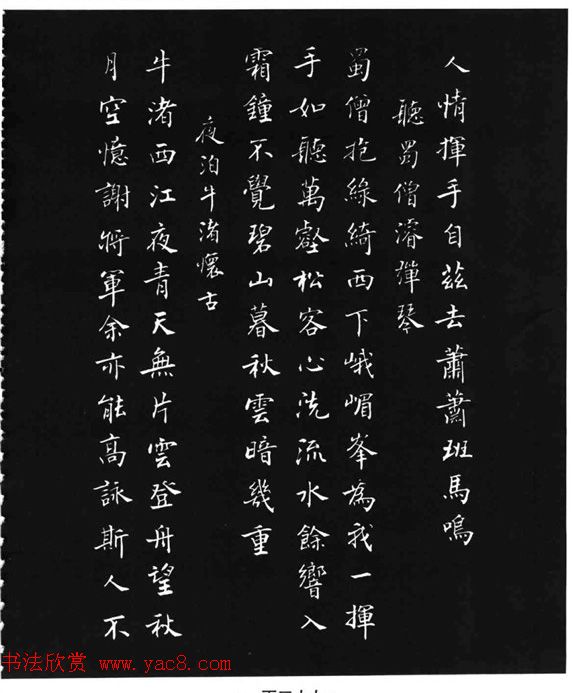 人情揮手自茲去蕭蕭班馬鳴
聽蜀僧濬彈琴
蜀僧抱綠綺西下峨嵋峯為我一揮
手如聽萬壑松客心洗流水餘響入
霜鐘不覺碧山暮秋雲暗幾重
夜泊牛渚懷古
牛渚西江夜青天無片雲登舟望秋
月空憶謝將軍余亦能高詠斯人不
书法欣赏 www.yac8.com